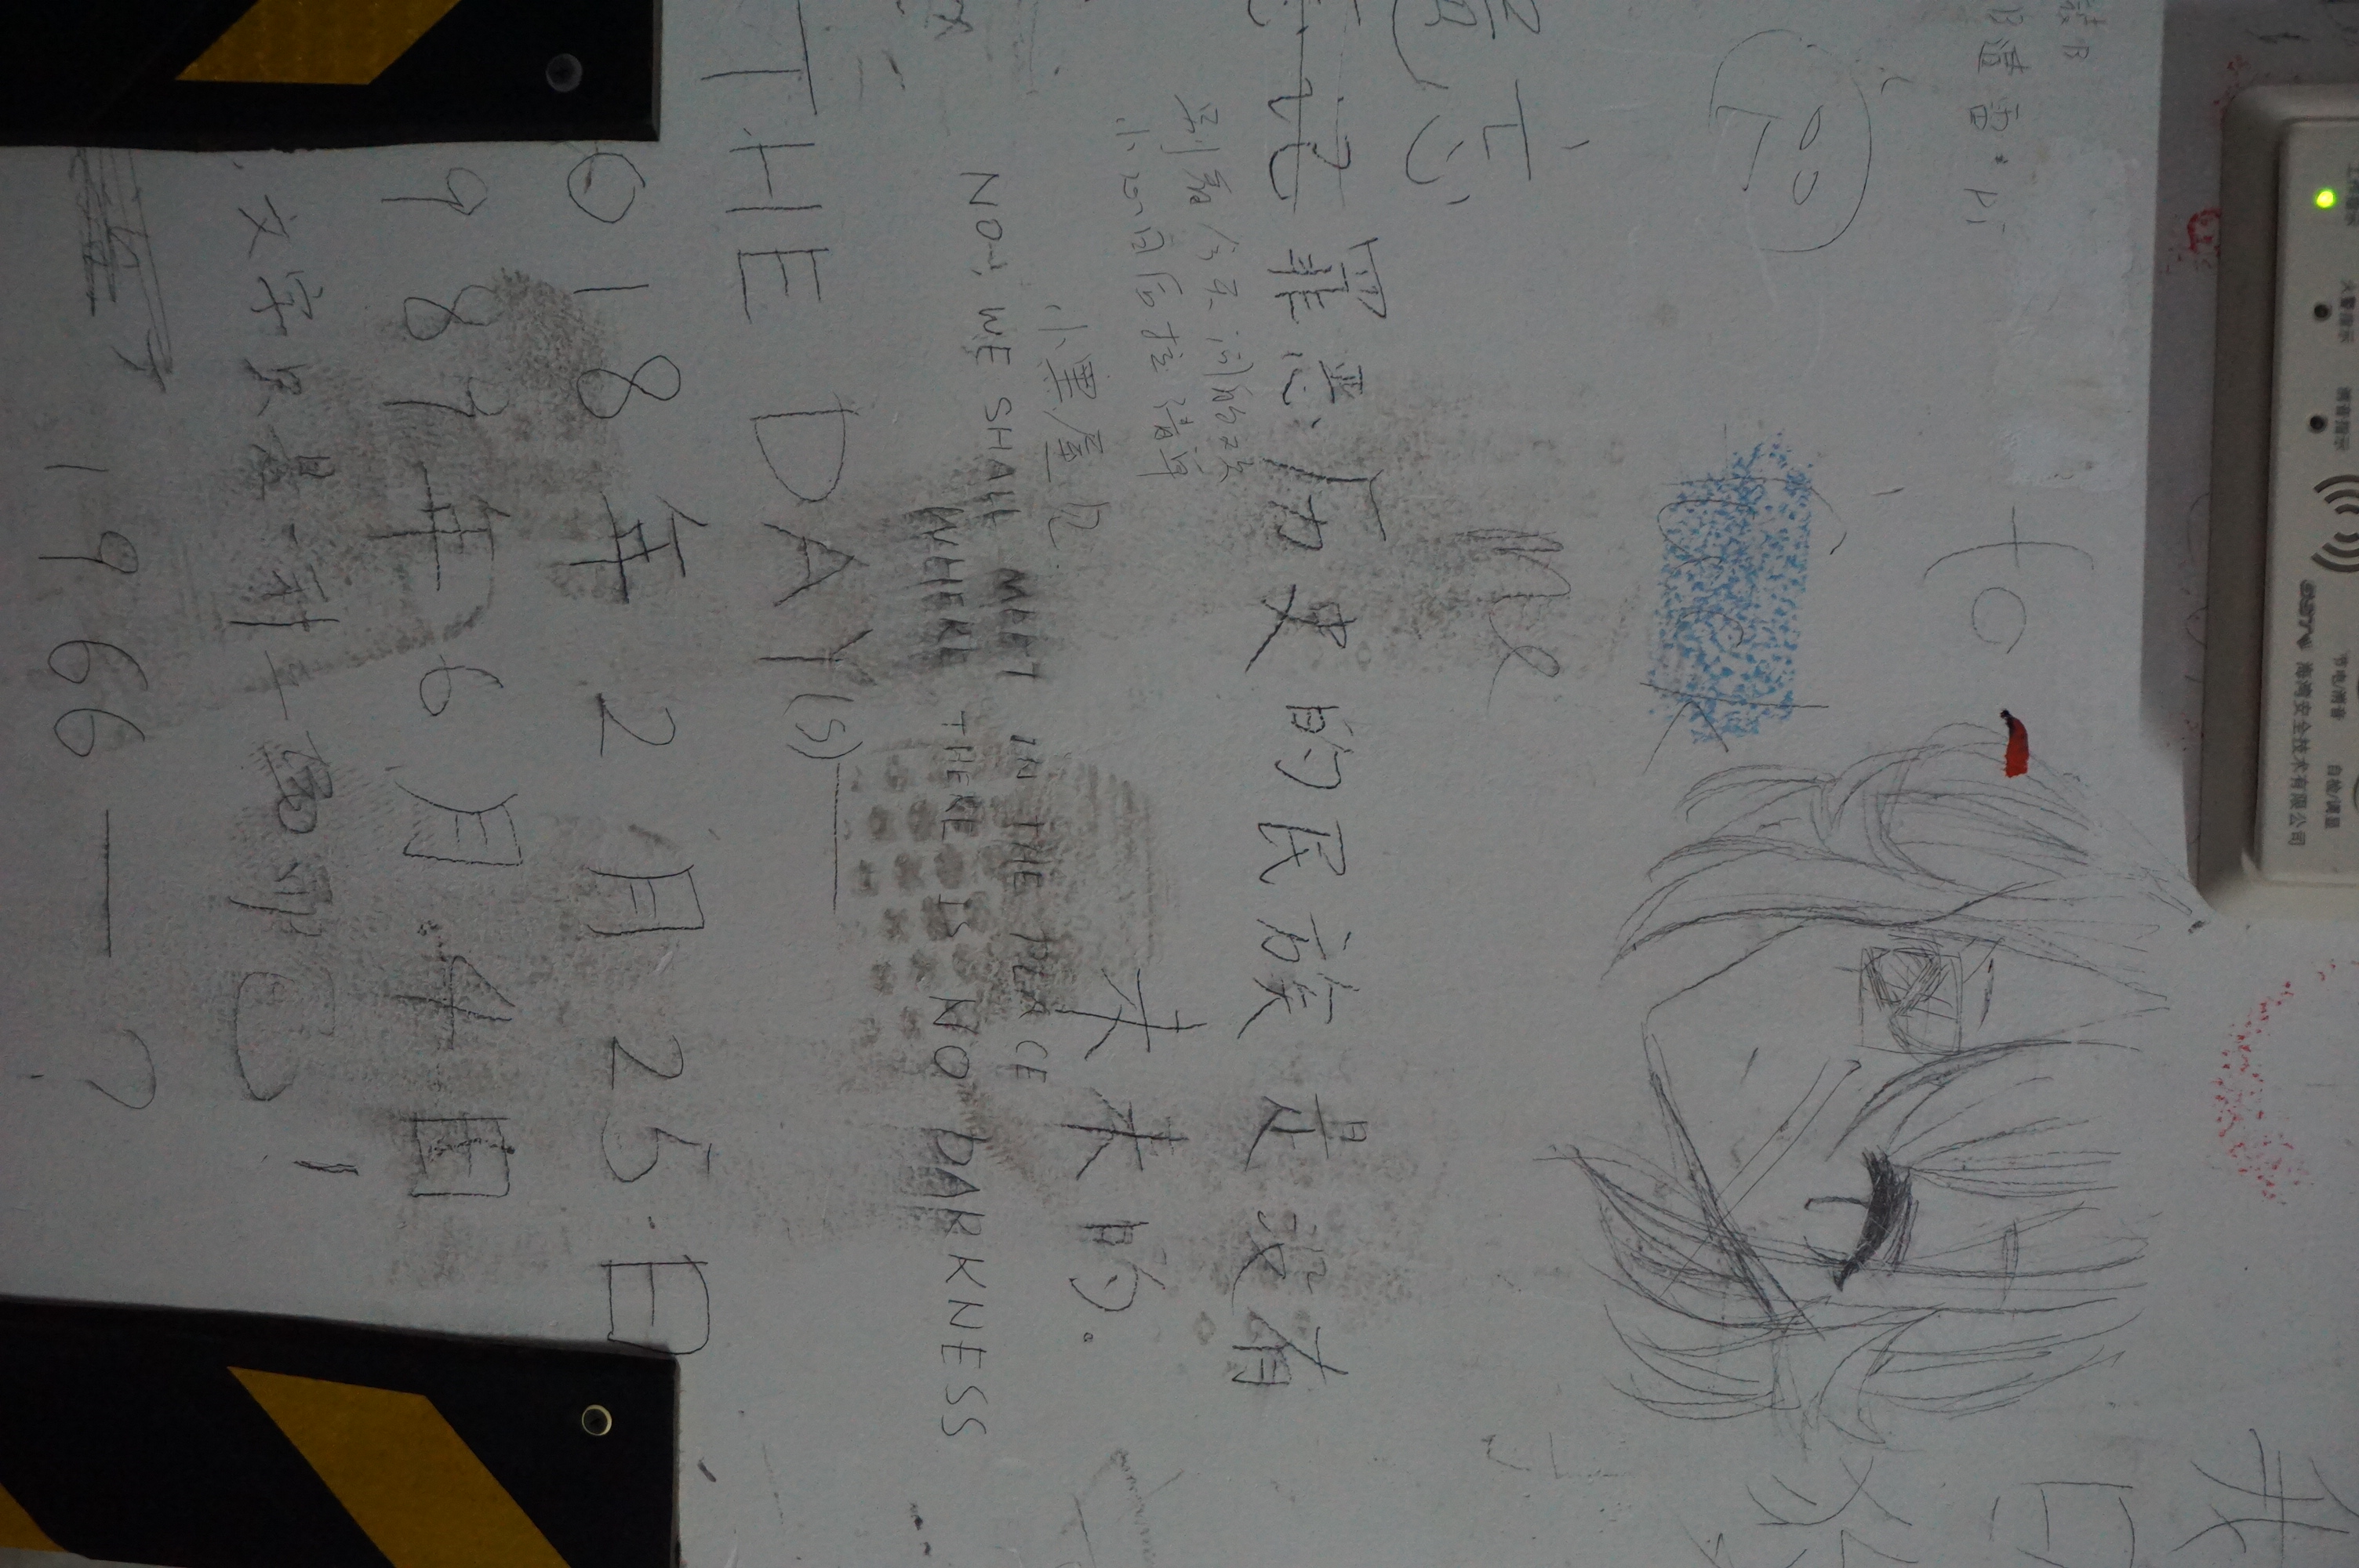 工作指示 火警指示 消音指示 节电/消音 自检/调显
GST 海湾安全技术有限公司
我
日
装B
B遭雷*pi
fo
uck
me
遗忘
忘记罪恶历史的民族是没有
未来的.
别看今天闹的欢
小心日后拉清单
小黑屋见.
NO, WE SHALL MEET IN THE PLACE
WHERE THERE IS NO DARKNESS
THE DAY(S)——
018年2月25日
989年6月4日
文字只是一种工具而已!
1966—?